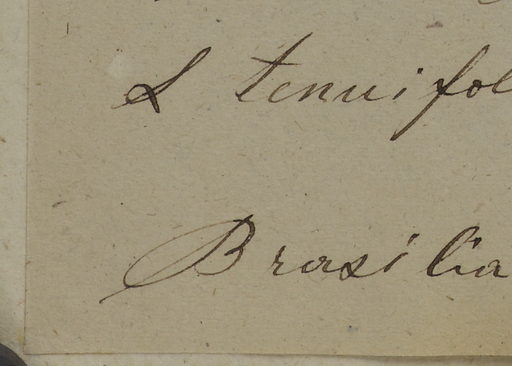 S tenuifol
Brasilia